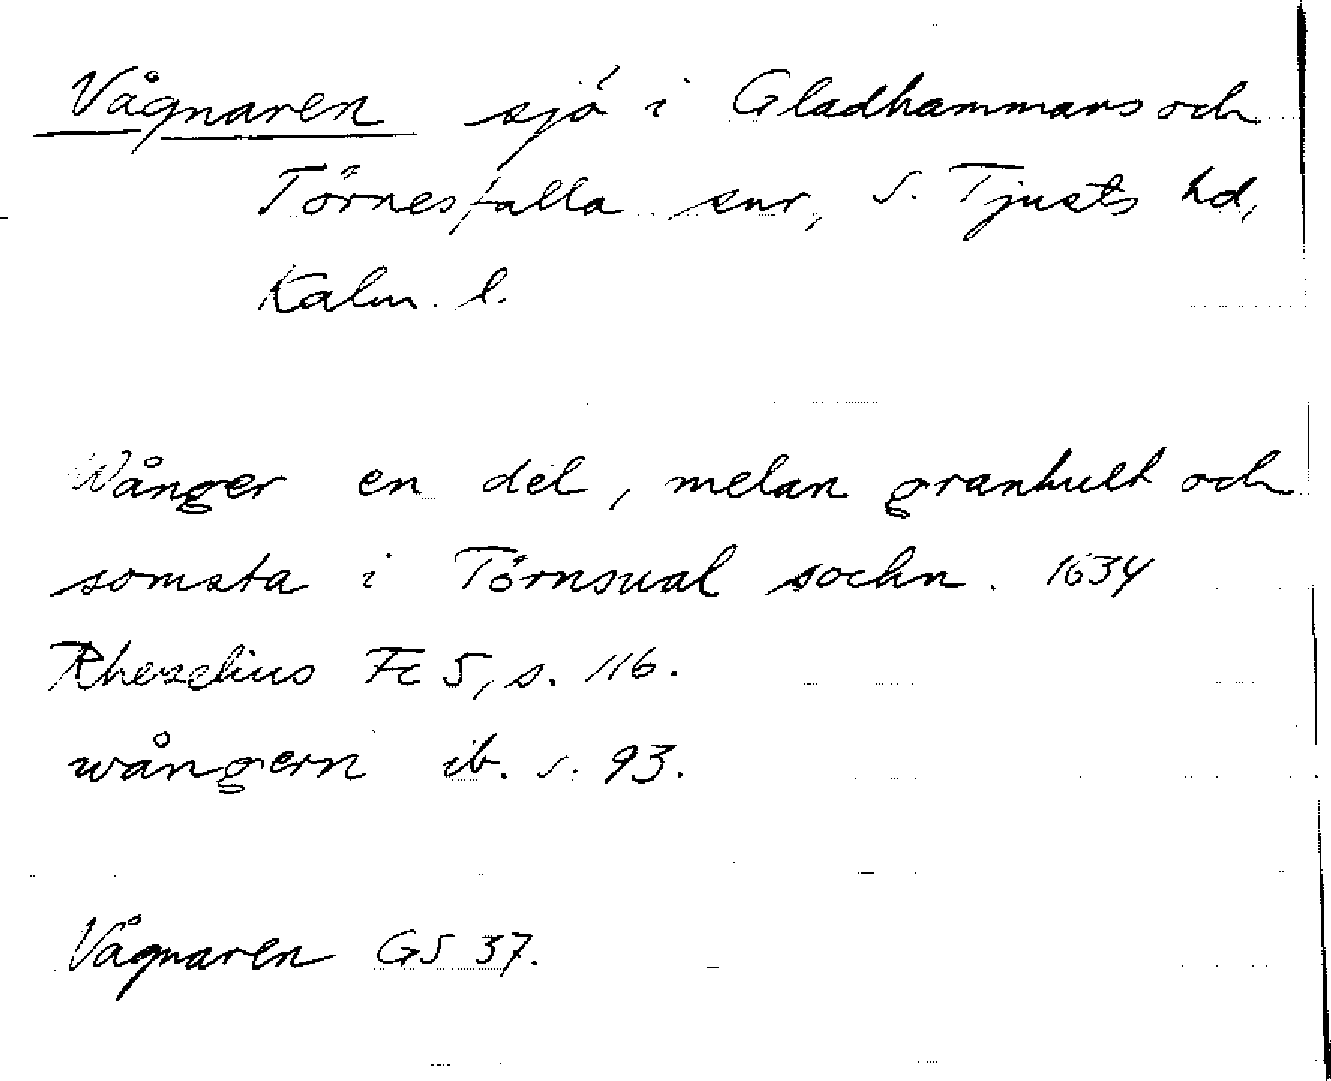 Vågnaren sjö i Gladhammars och
Törnesfalla snr, S. Tjusts hd,
Kalm. l.
Wånger en del, melan granhult och
somsta i Törnsual sochn. 1634
Rhezelius Fc 5, s. 116.
wångern ib. s. 93.
Vågnaren GS 37.